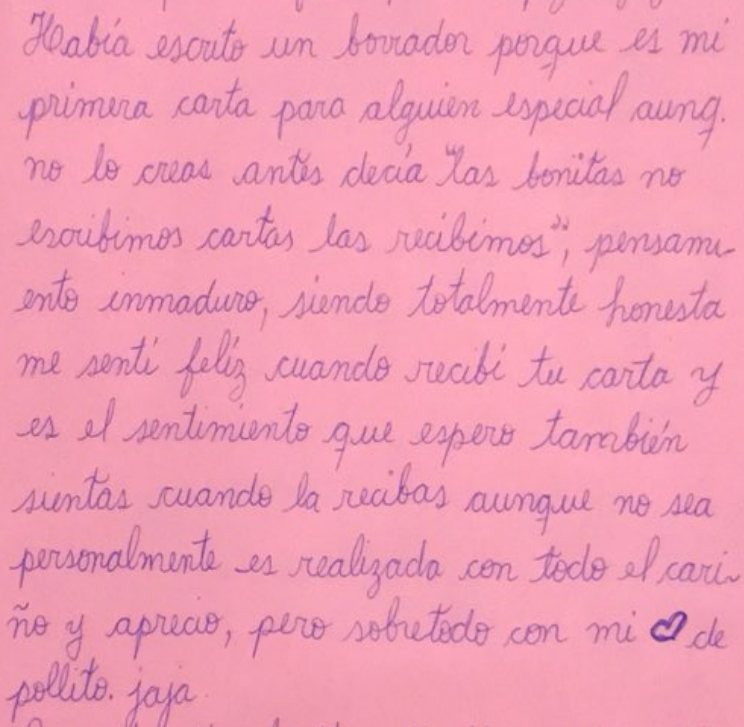 Había escrito un borrador porque es mi
primera carta para alguien especial aunq.
no lo creas antes decía "las bonitas no
escribimos cartas las recibimos", pensami-
ento inmaduro, siendo totalmente honesta
me sentí felíz cuando recibí tu carta y
es el sentimiento que espero también
sientas cuando la recibas aunque no sea
personalmente es realizada con todo el cari-
ño y aprecio, pero sobretodo con mi ♡ de
pollito. jaja